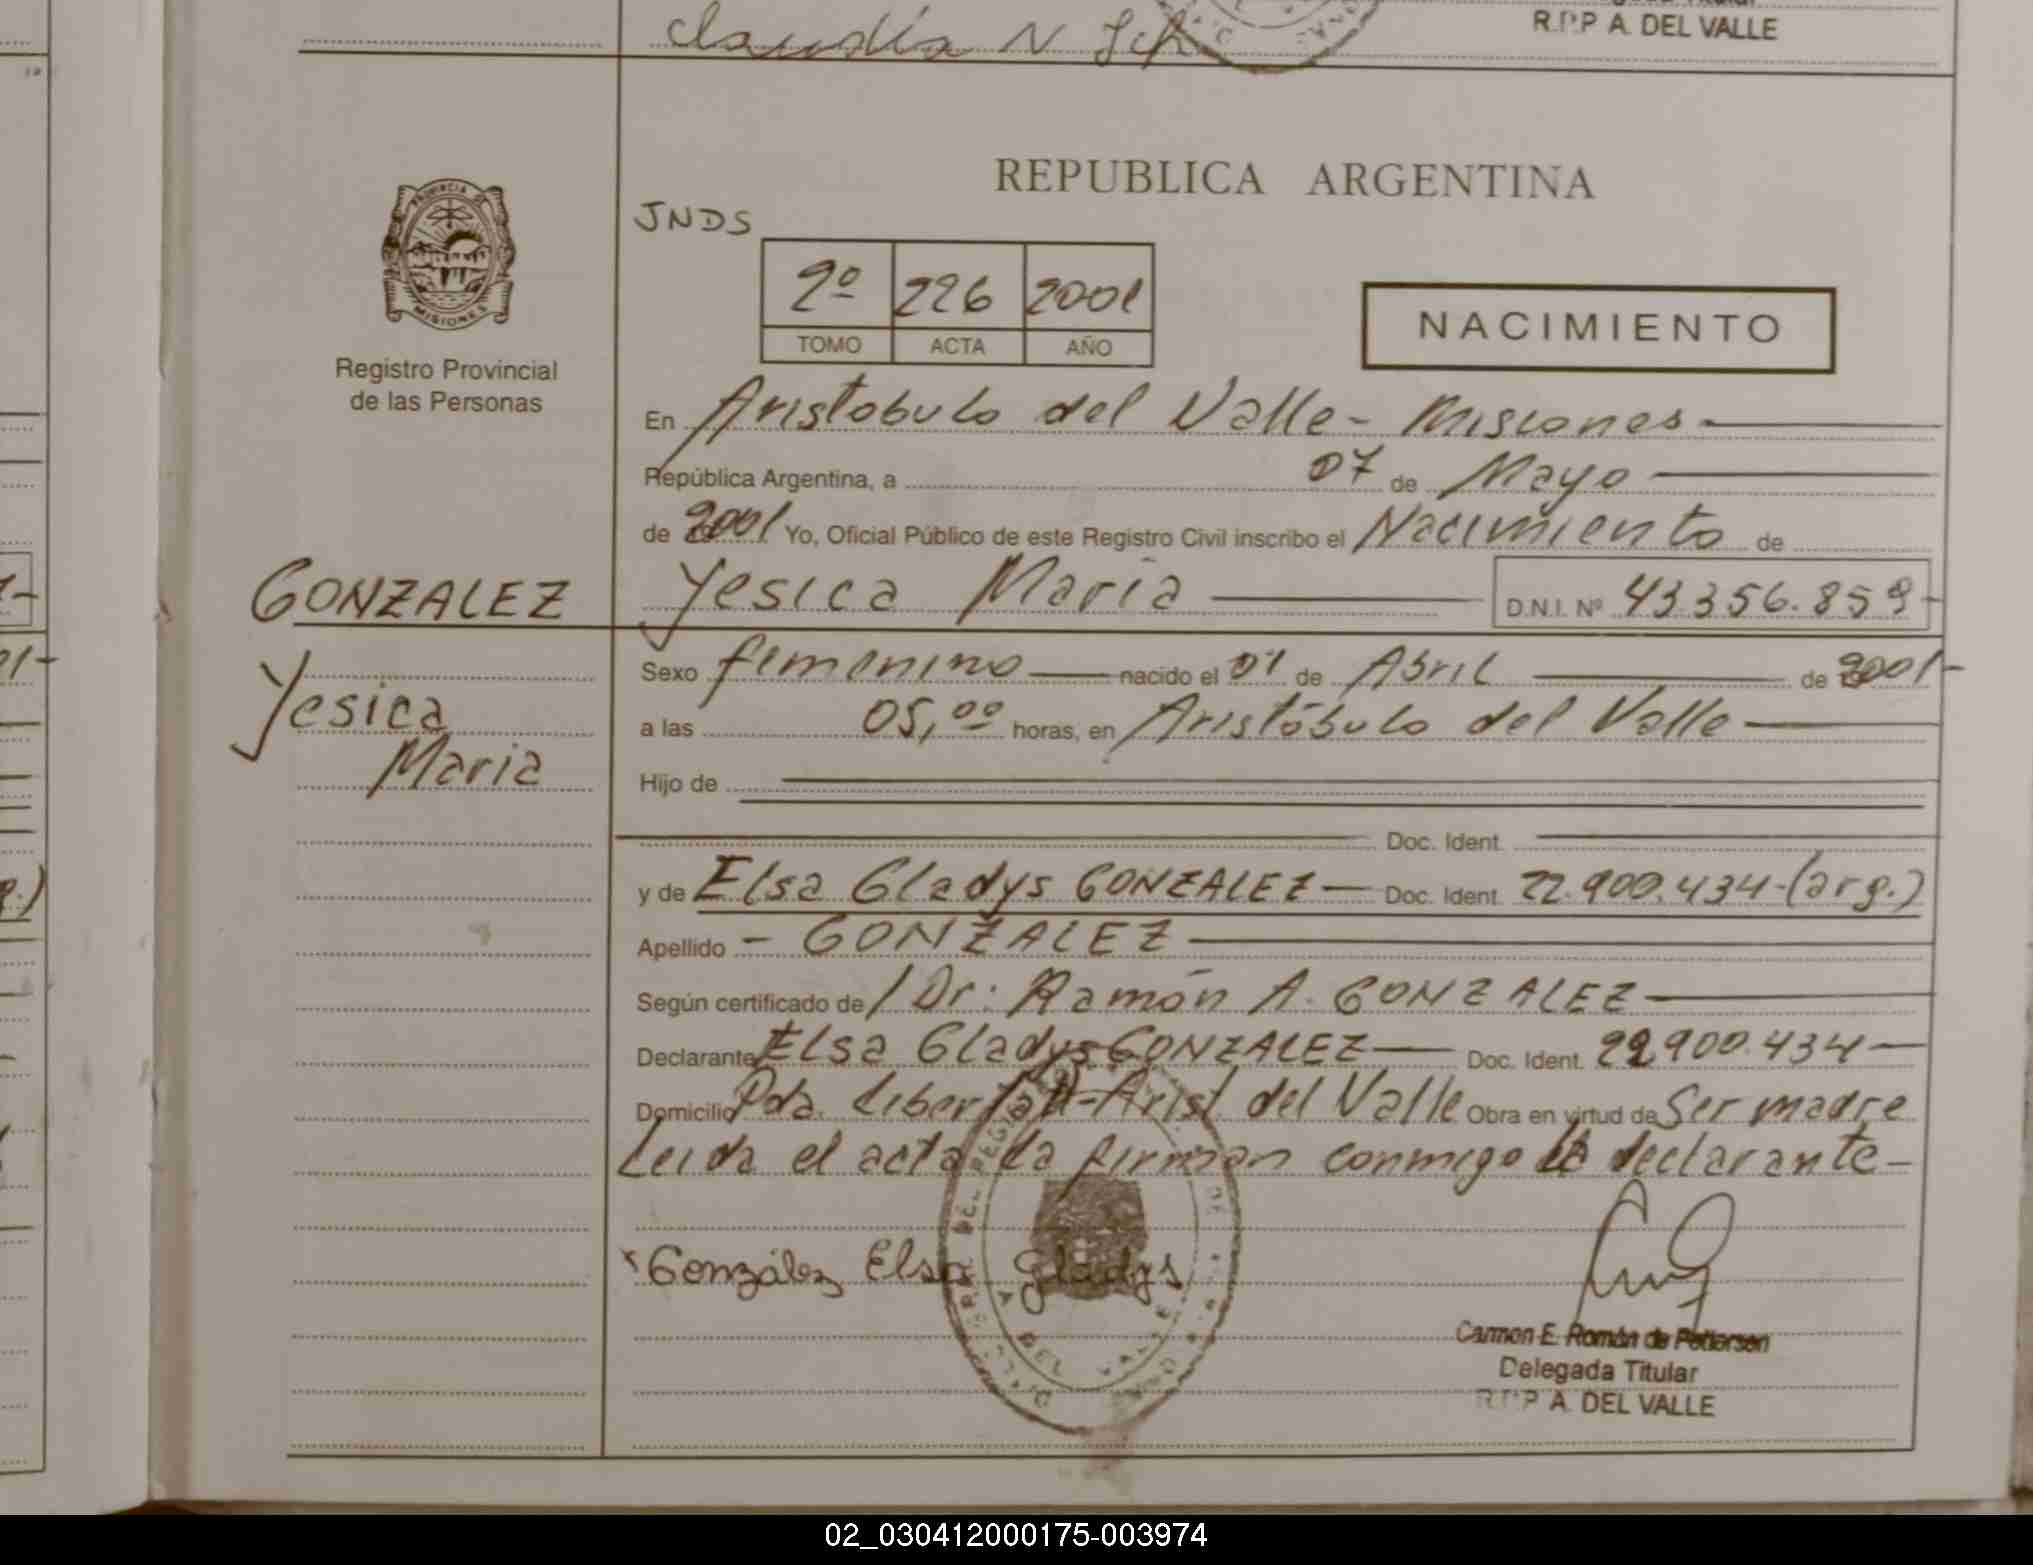 Claudia N
R.P.P A. DEL VALLE
PROVINCIA DE
MISIONES
Registro Provincial
de las Personas
REPUBLICA ARGENTINA
JNDS
2º 226 2001
TOMO ACTA AÑO
NACIMIENTO
En Aristobulo del Valle - Misiones
República Argentina, a 07 de Mayo
de 2001 Yo, Oficial Público de este Registro Civil inscribo el Nacimiento de
GONZALEZ Yesica Maria D.N.I. Nº 43.356.859
Yesica
Maria
Sexo femenino nacido el 01 de Abril de 2001-
a las 05,00 horas, en Aristóbulo del Valle
Hijo de
Doc. Ident.
y de Elsa Gladys GONZALEZ - Doc. Ident. 22.900.434-(arg.)
Apellido - GONZALEZ
Según certificado de / Dr: Ramón A. GONZALEZ
Declarante Elsa Gladys GONZALEZ Doc. Ident. 22900.434
Domicilio Pda. Libertad-Arist del Valle Obra en virtud de Ser madre
Leida el acta la firman conmigo la declarante-
González Elsa Gladys
Carmen E. Román de Pedersen
Delegada Titular
R.P.P A. DEL VALLE
02_030412000175-003974